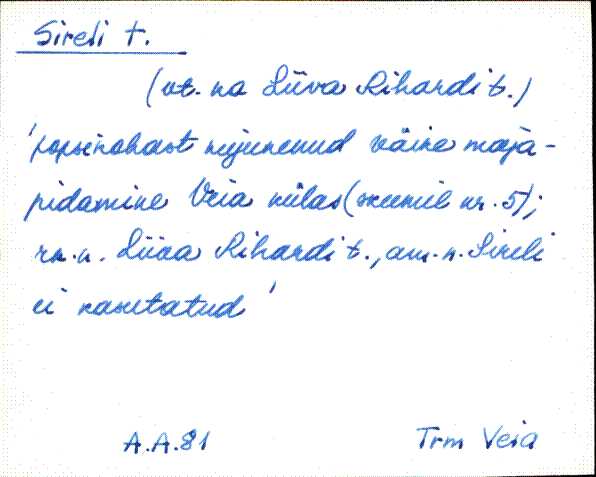 Sireli t.
(vt. ka Liiva Rihardi t.)
'popsikohast kujunenud väike maja-
pidamine Veia külas (skeemil nr. 5);
rk.n. Liiva Rihardi t., am.n. Sireli
ei kasutatud'
A.A.81 Trm Veia